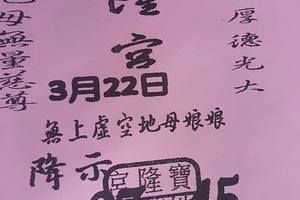 厚德光大
宮
3月22日
無上虛空地母娘娘
降示
母無量慈尊
寶隆宮